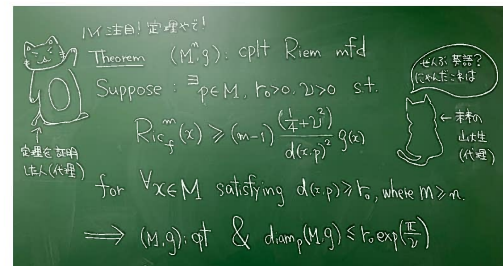 ハイ注目！定理やで！
Theorem (Mⁿ,g): cplt Riem mfd
Suppose : ∃p∈M, r₀>0, ν>0 s.t.
Ric_f^m(x) ≥ (m-1) (1/4+ν²)/d(x,p)² g(x)
for ∀x∈M satisfying d(x,p)≥r₀, where m≥n.
⟹ (M,g): cpt & diam_p(M,g) ≤ r₀ exp(π/ν)
定理を証明
した人(代理)
ぜんぶ英語？
にゃんだこれは
←未来の
山大生
(代理)